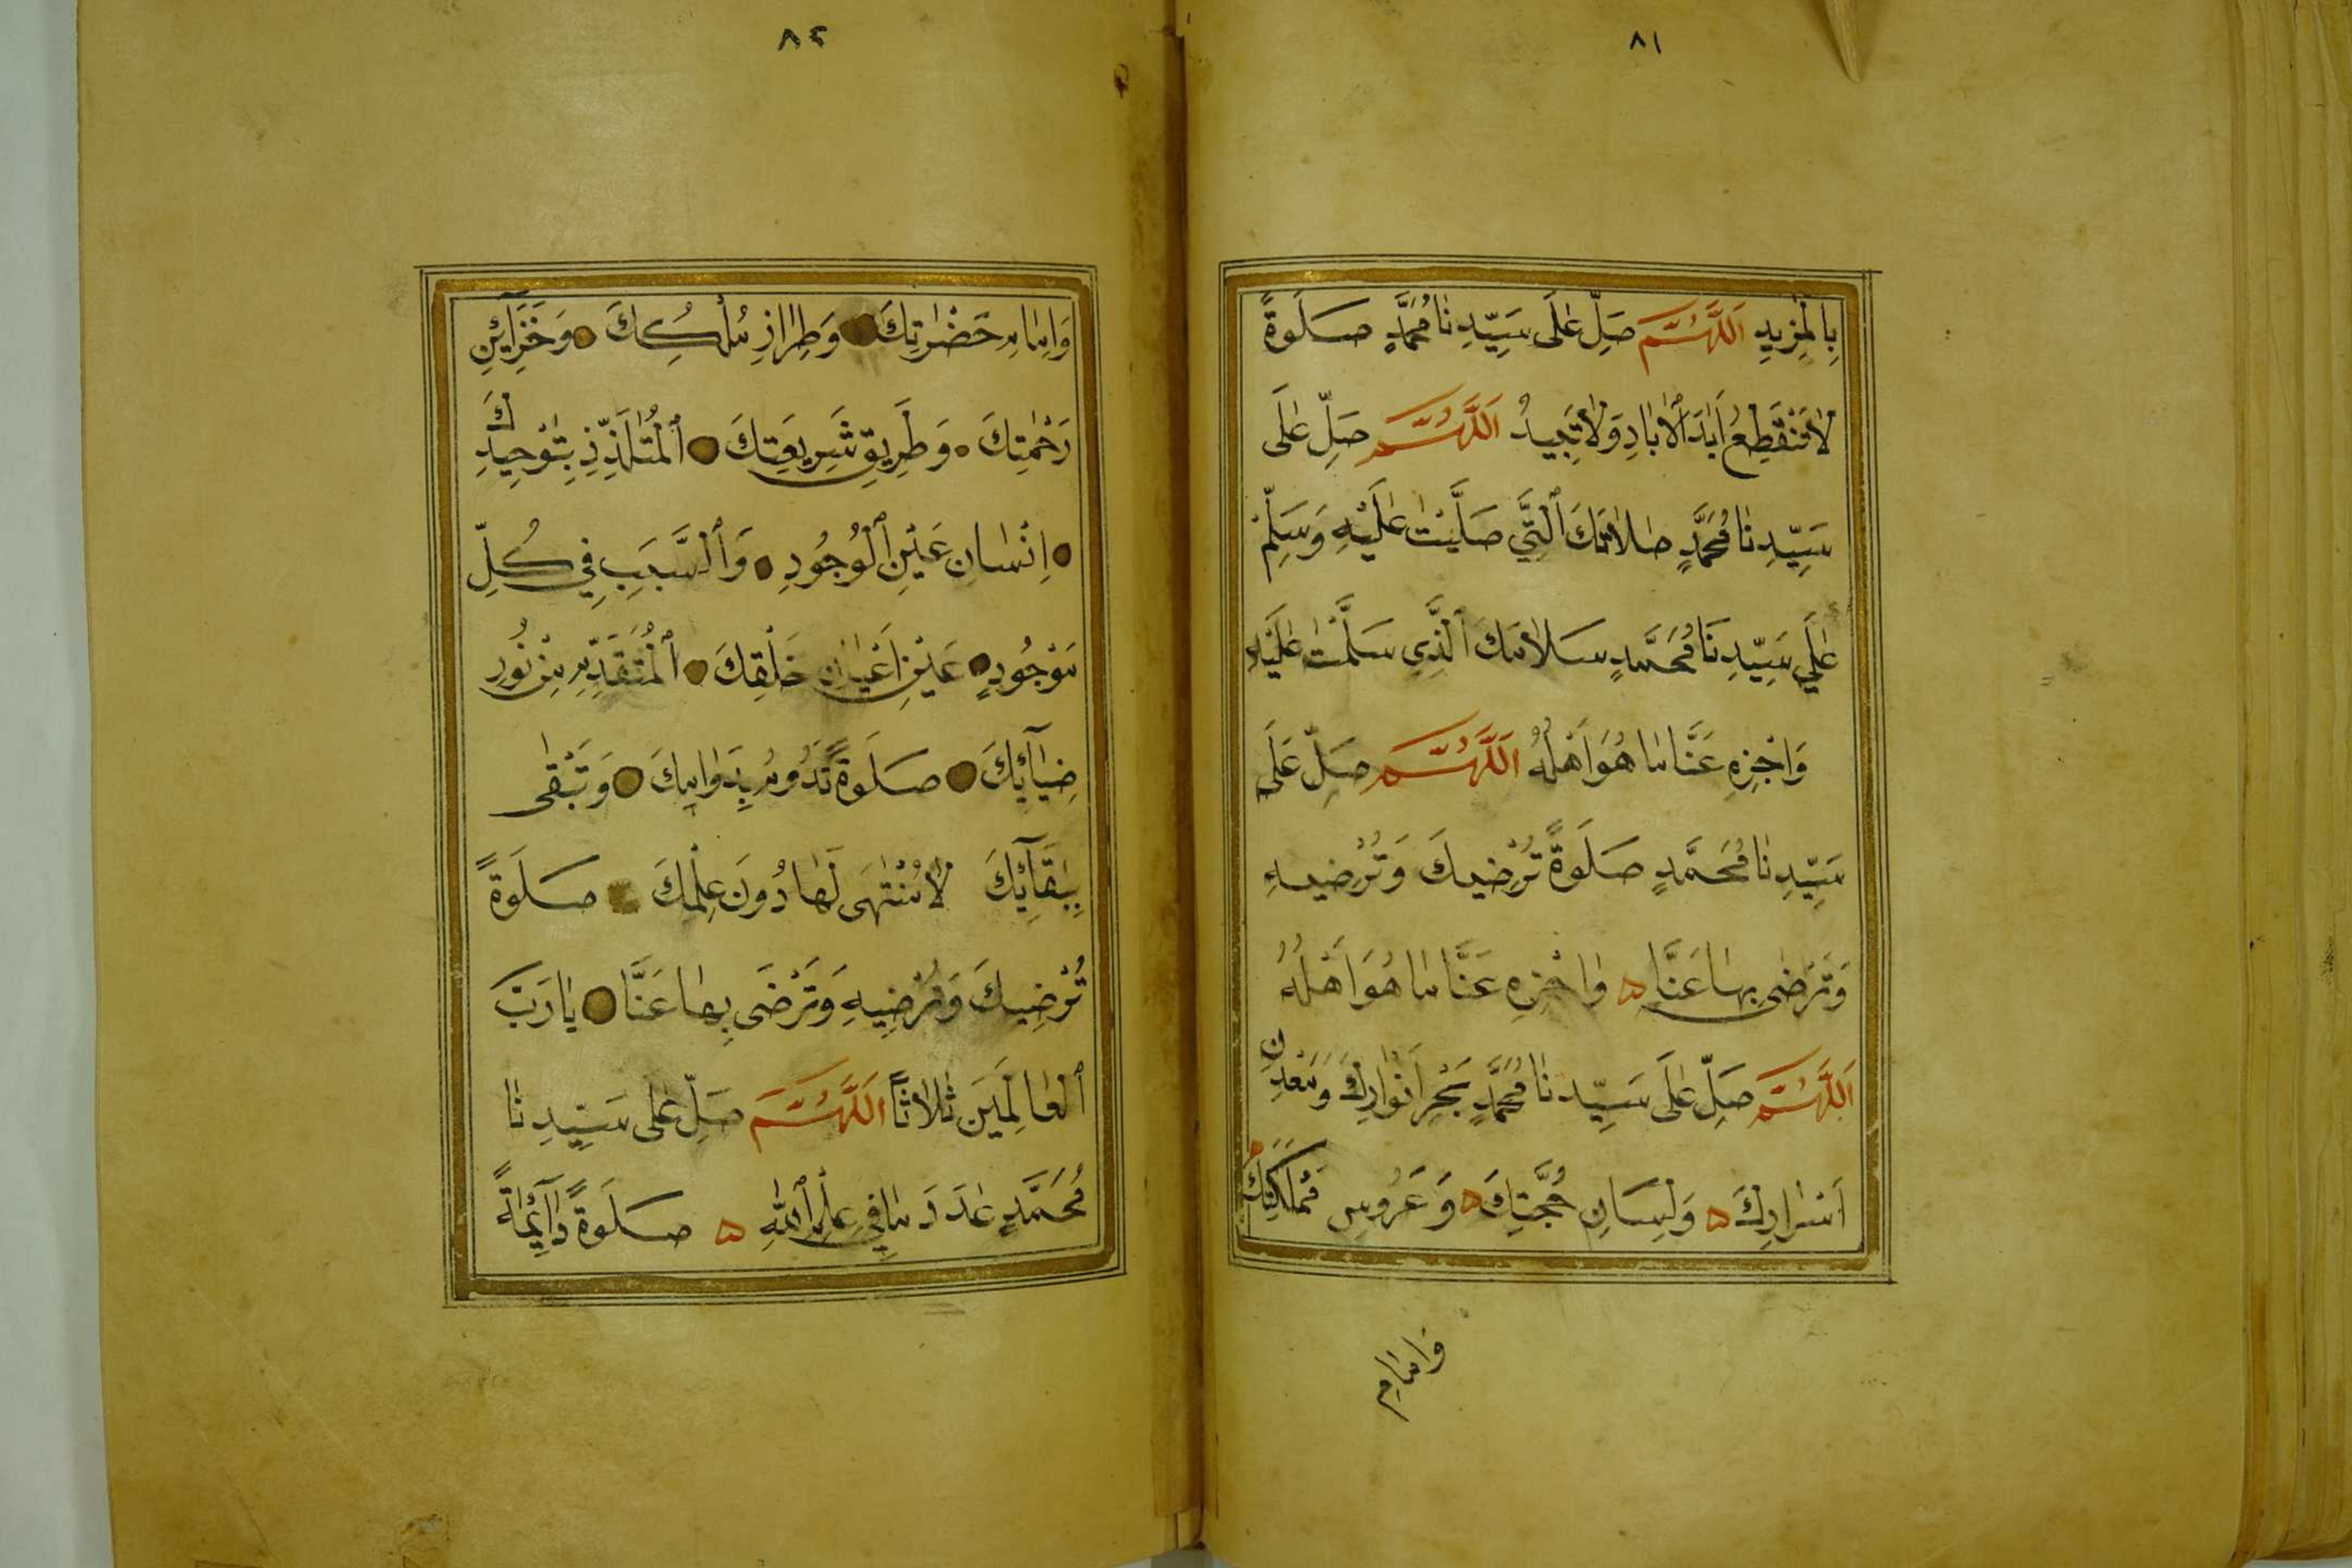 ٨١
بِالْمَزِيدِ اَللّٰهُمَّ صَلِّ عَلَى سَيِّدِنَا مُحَمَّدٍ صَلَوةً
لَا تَنْقَطِعُ اَبَدَ الْاٰبَادِ وَلَا تَبِيدُ اَللّٰهُمَّ صَلِّ عَلَى
سَيِّدِنَا مُحَمَّدٍ صَلَاتَكَ ٱلَّتِي صَلَّيْتَ عَلَيْهِ وَسَلِّمْ
عَلَي سَيِّدِنَا مُحَمَّدٍ سَلَامَكَ ٱلَّذِي سَلَّمْتَ عَلَيْهِ
وَاجْزِهِ عَنَّا مَا هُوَ اَهْلُهُ اَللّٰهُمَّ صَلِّ عَلَى
سَيِّدِنَا مُحَمَّدٍ صَلَوةً تُرْضِيكَ وَتُرْضِيهِ
وَتَرْضٰى بِهَا عَنَّا ۵ وَاجْزِهِ عَنَّا مَا هُوَ اَهْلُهُ
اَللّٰهُمَّ صَلِّ عَلَى سَيِّدِنَا مُحَمَّدٍ بَحْرِ اَنْوَارِكَ وَمَعْدِنِ
اَسْرَارِكَ ۵ وَلِسَانِ حُجَّتِكَ ۵ وَعَرُوسِ مَمْلَكَتِكَ
وَامَامِ
٨٢
وَاِمَامِ حَضْرَتِكَ وَطِرَازِ مُلْكِكَ وَخَزَآئِنِ
رَحْمَتِكَ وَطَرِيقِ شَرِيعَتِكَ ٱلْمُتَلَذِّذِ بِتَوْحِيدِكَ
اِنْسَانِ عَيْنِ ٱلْوُجُودِ وَٱلسَّبَبِ فِي كُلِّ
مَوْجُودٍ عَيْنِ اَعْيَانِ خَلْقِكَ ٱلْمُتَقَدِّمِ مِنْ نُورِ
ضِيَآئِكَ صَلَوةً تَدُومُ بِدَوَامِكَ وَتَبْقٰى
بِبَقَآئِكَ لَا مُنْتَهَى لَهَا دُونَ عِلْمِكَ صَلَوةً
تُرْضِيكَ وَتُرْضِيهِ وَتَرْضَى بِهَا عَنَّا يَا رَبَّ
ٱلْعَالَمِينَ ثَلَاثًا اَللّٰهُمَّ صَلِّ عَلَى سَيِّدِنَا
مُحَمَّدٍ عَدَدَ مَا فِي عِلْمِ ٱللّٰهِ ۵ صَلَوةً دَآئِمَةً